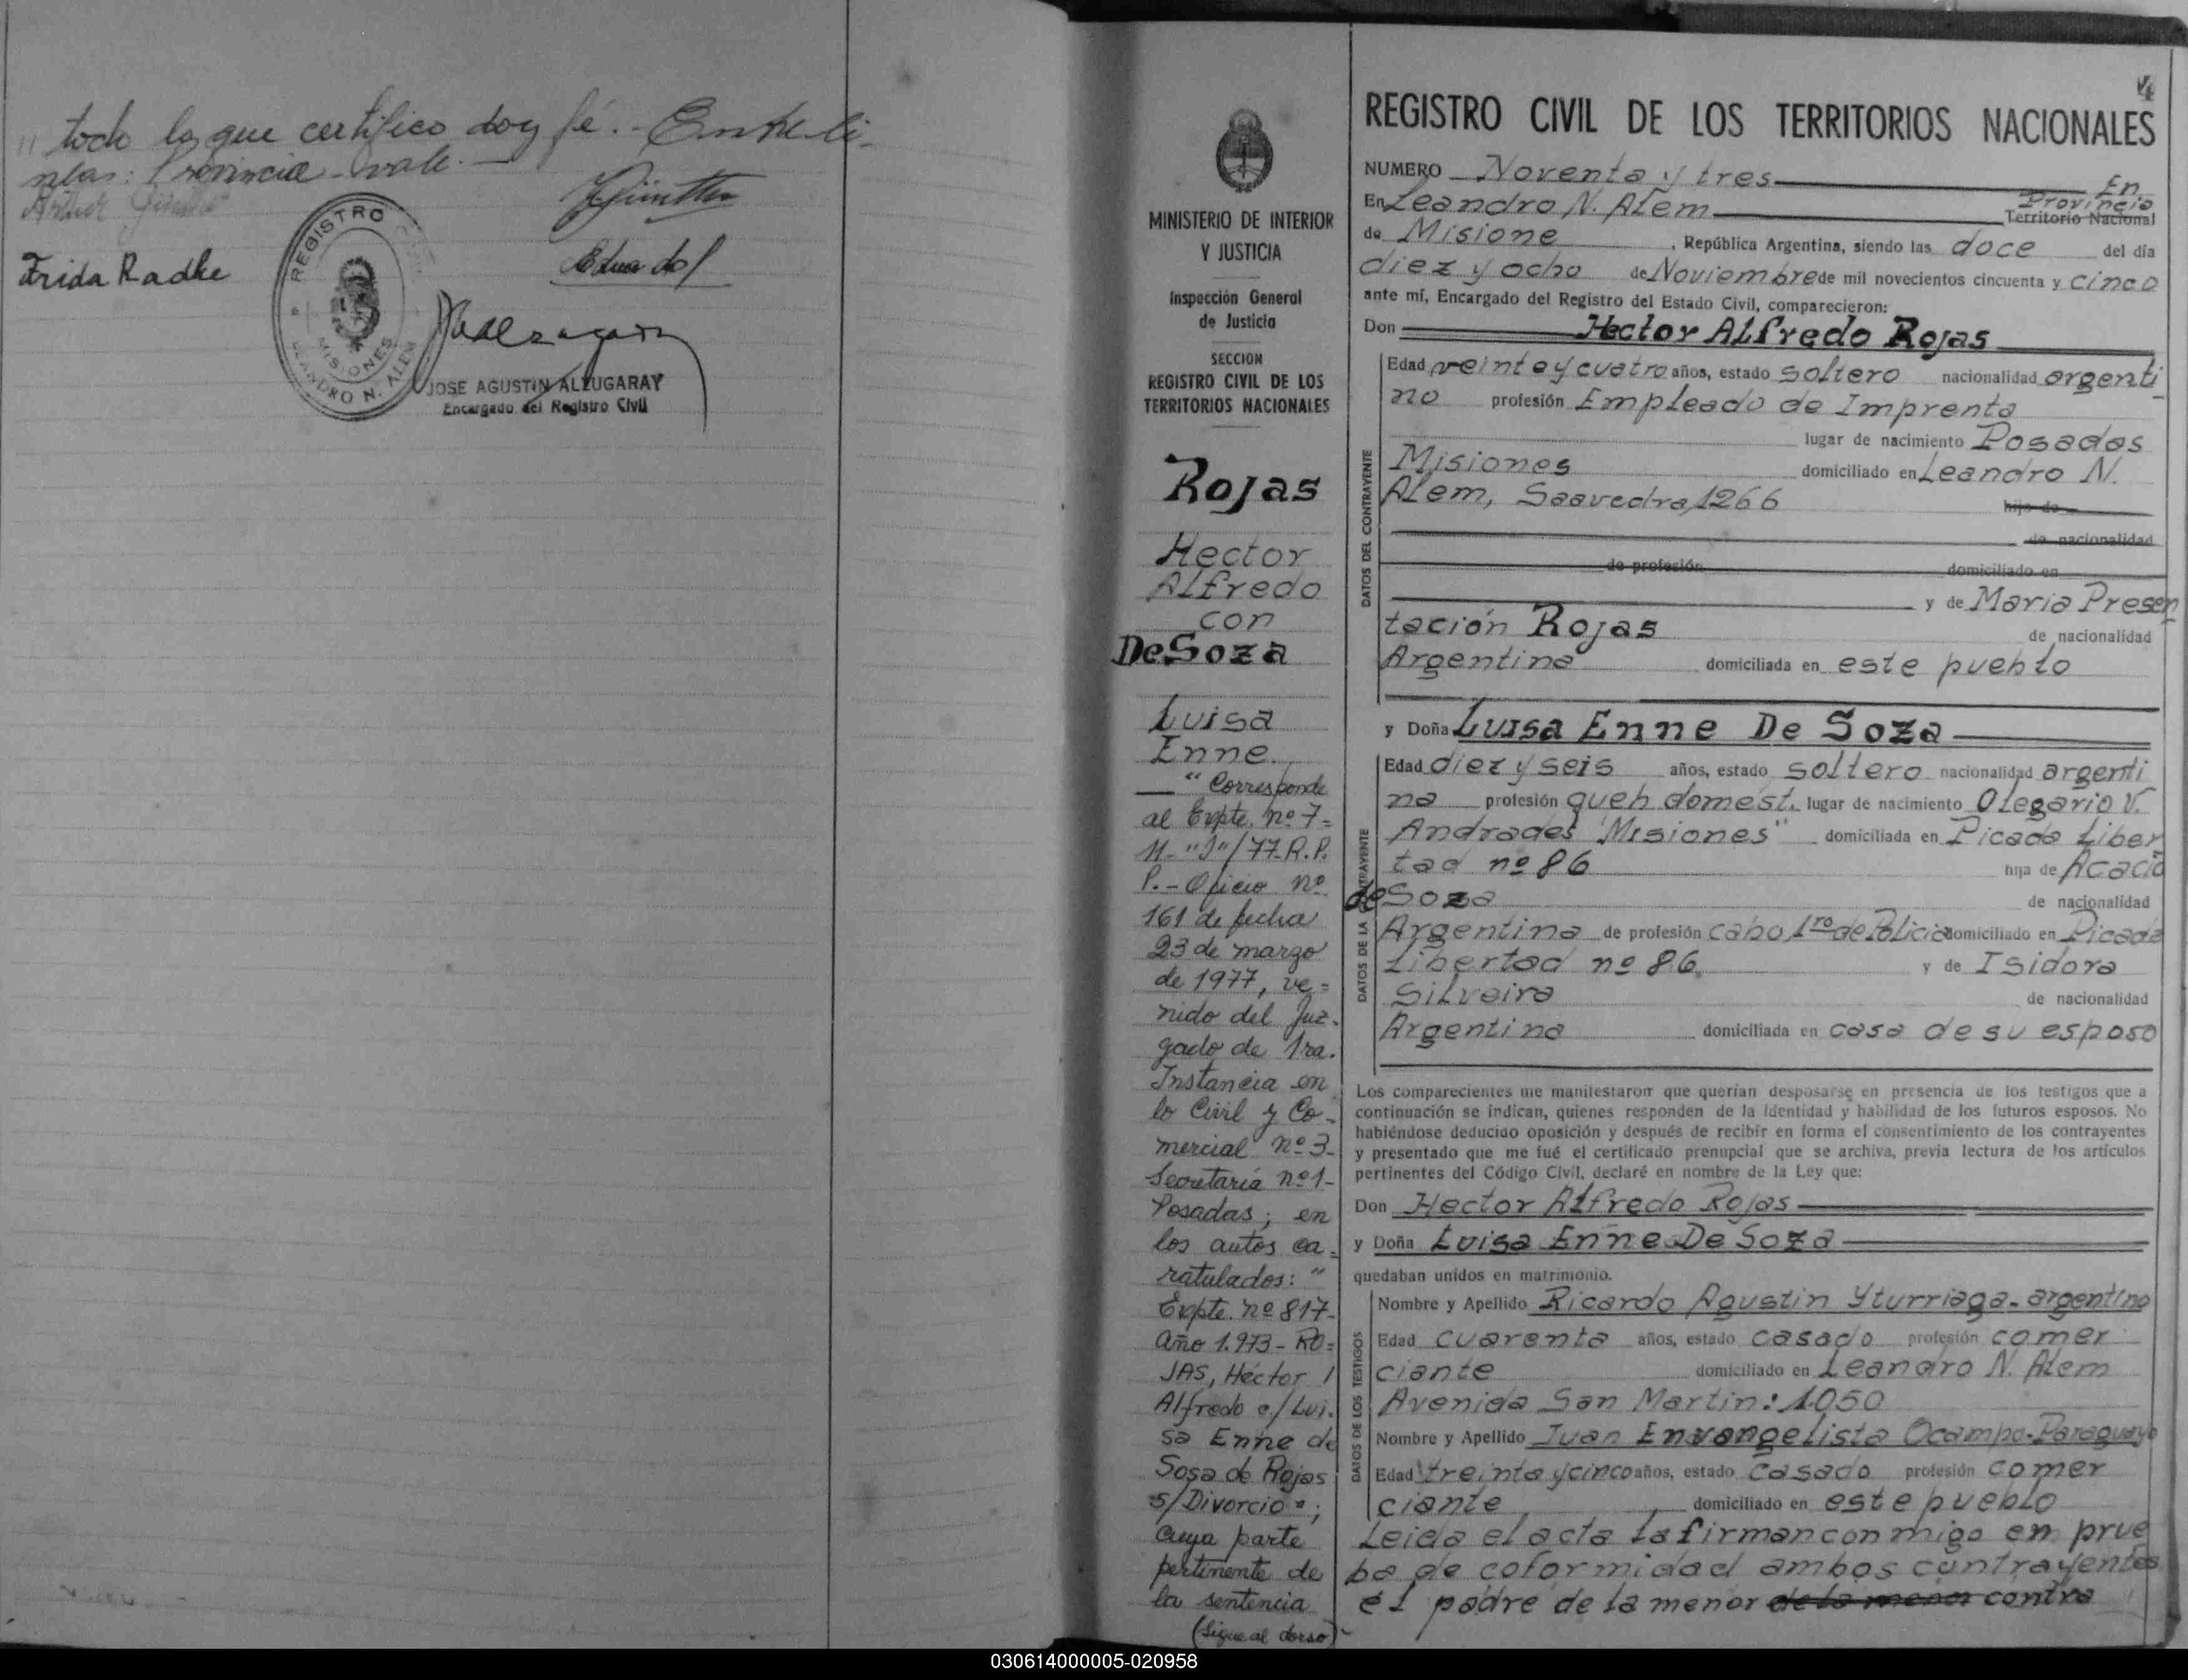 " todo lo que certifico doy fé.- Entre li-
neas: Provincia - vale.-
Frida Radke
REGISTRO
MISIONES
LEANDRO N. ALEM
JOSE AGUSTIN ALZUGARAY
Encargado del Registro Civil
4
MINISTERIO DE INTERIOR
Y JUSTICIA
Inspección General
de Justicia
SECCION
REGISTRO CIVIL DE LOS
TERRITORIOS NACIONALES
Rojas
Hector
Alfredo
con
De Soza
Luisa
Enne.
" Corresponde
al Expte. nº 7=
11-"J"/77-R.P.
P.- Oficio nº
161 de fecha
23 de marzo
de 1977, ve=
nido del Juz-
gado de 1ra.
Instancia en
lo Civil y Co-
mercial nº 3-
Secretaría nº 1-
Posadas; en
los autos ca=
ratulados: "
Expte. nº 817-
año 1.973- RO=
JAS, Héctor
Alfredo c/ Lui-
sa Enne de
Sosa de Rojas
s/Divorcio";
cuya parte
pertinente de
la sentencia
(Sigue al dorso)-
REGISTRO CIVIL DE LOS TERRITORIOS NACIONALES
NUMERO Noventa y tres En
En Leandro N. Alem Provincia Territorio Nacional
de Misione , República Argentina, siendo las doce del día
diez y ocho de Noviembre de mil novecientos cincuenta y cinco
ante mí, Encargado del Registro del Estado Civil, comparecieron:
Don Hector Alfredo Rojas
DATOS DEL CONTRAYENTE
Edad veinte y cuatro años, estado soltero nacionalidad argenti
no profesión Empleado de Imprenta
lugar de nacimiento Posadas
Misiones domiciliado en Leandro N.
Alem, Saavedra, 1266 hijo de
de nacionalidad
de profesión domiciliado en
y de Maria Presen
tación Rojas de nacionalidad
Argentina domiciliada en este pueblo
y Doña Luisa Enne De Soza
DATOS DE LA CONTRAYENTE
Edad diez y seis años, estado soltero nacionalidad argenti
na profesión queh domest. lugar de nacimiento Olegario V.
Andrades "Misiones" domiciliada en Picada Liber
tad nº 86 hija de Acacio
de Soza de nacionalidad
Argentina de profesión cabo 1ro de Policia domiciliado en Picada
Libertad nº 86. y de Isidora
Silveira de nacionalidad
Argentina domiciliada en casa de su esposo
Los comparecientes me manifestaron que querían desposarse en presencia de los testigos que a
continuación se indican, quienes responden de la identidad y habilidad de los futuros esposos. No
habiéndose deducido oposición y después de recibir en forma el consentimiento de los contrayentes
y presentado que me fué el certificado prenupcial que se archiva, previa lectura de los artículos
pertinentes del Código Civil, declaré en nombre de la Ley que:
Don Hector Alfredo Rojas
y Doña Luisa Enne De Soza
quedaban unidos en matrimonio.
DATOS DE LOS TESTIGOS
Nombre y Apellido Ricardo Agustin Yturriaga - argentino
Edad cuarenta años, estado casado profesión comer
ciante domiciliado en Leandro N. Alem
Avenida San Martin: 1050
Nombre y Apellido Juan Envangelista Ocampo-Paraguayo
Edad treinta y cinco años, estado casado profesión comer
ciante domiciliado en este pueblo
Leida el acta la firman conmigo en prue
ba de coformidad ambos contrayentes
él padre de la menor de la menor contra "
030614000005-020958